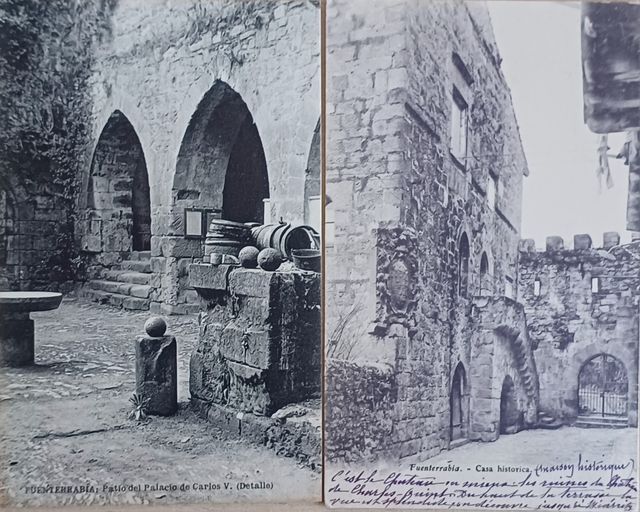 FUENTERRABÍA; Patio del Palacio de Carlos V. (Detalle)
Fuenterrabía. - Casa historica. (maison historique)
C'est le Château en ruines les ruines du Château
de Charles-Quint. Du haut de la terrasse la
vue est splendide on découvre jusqu'à Biarritz